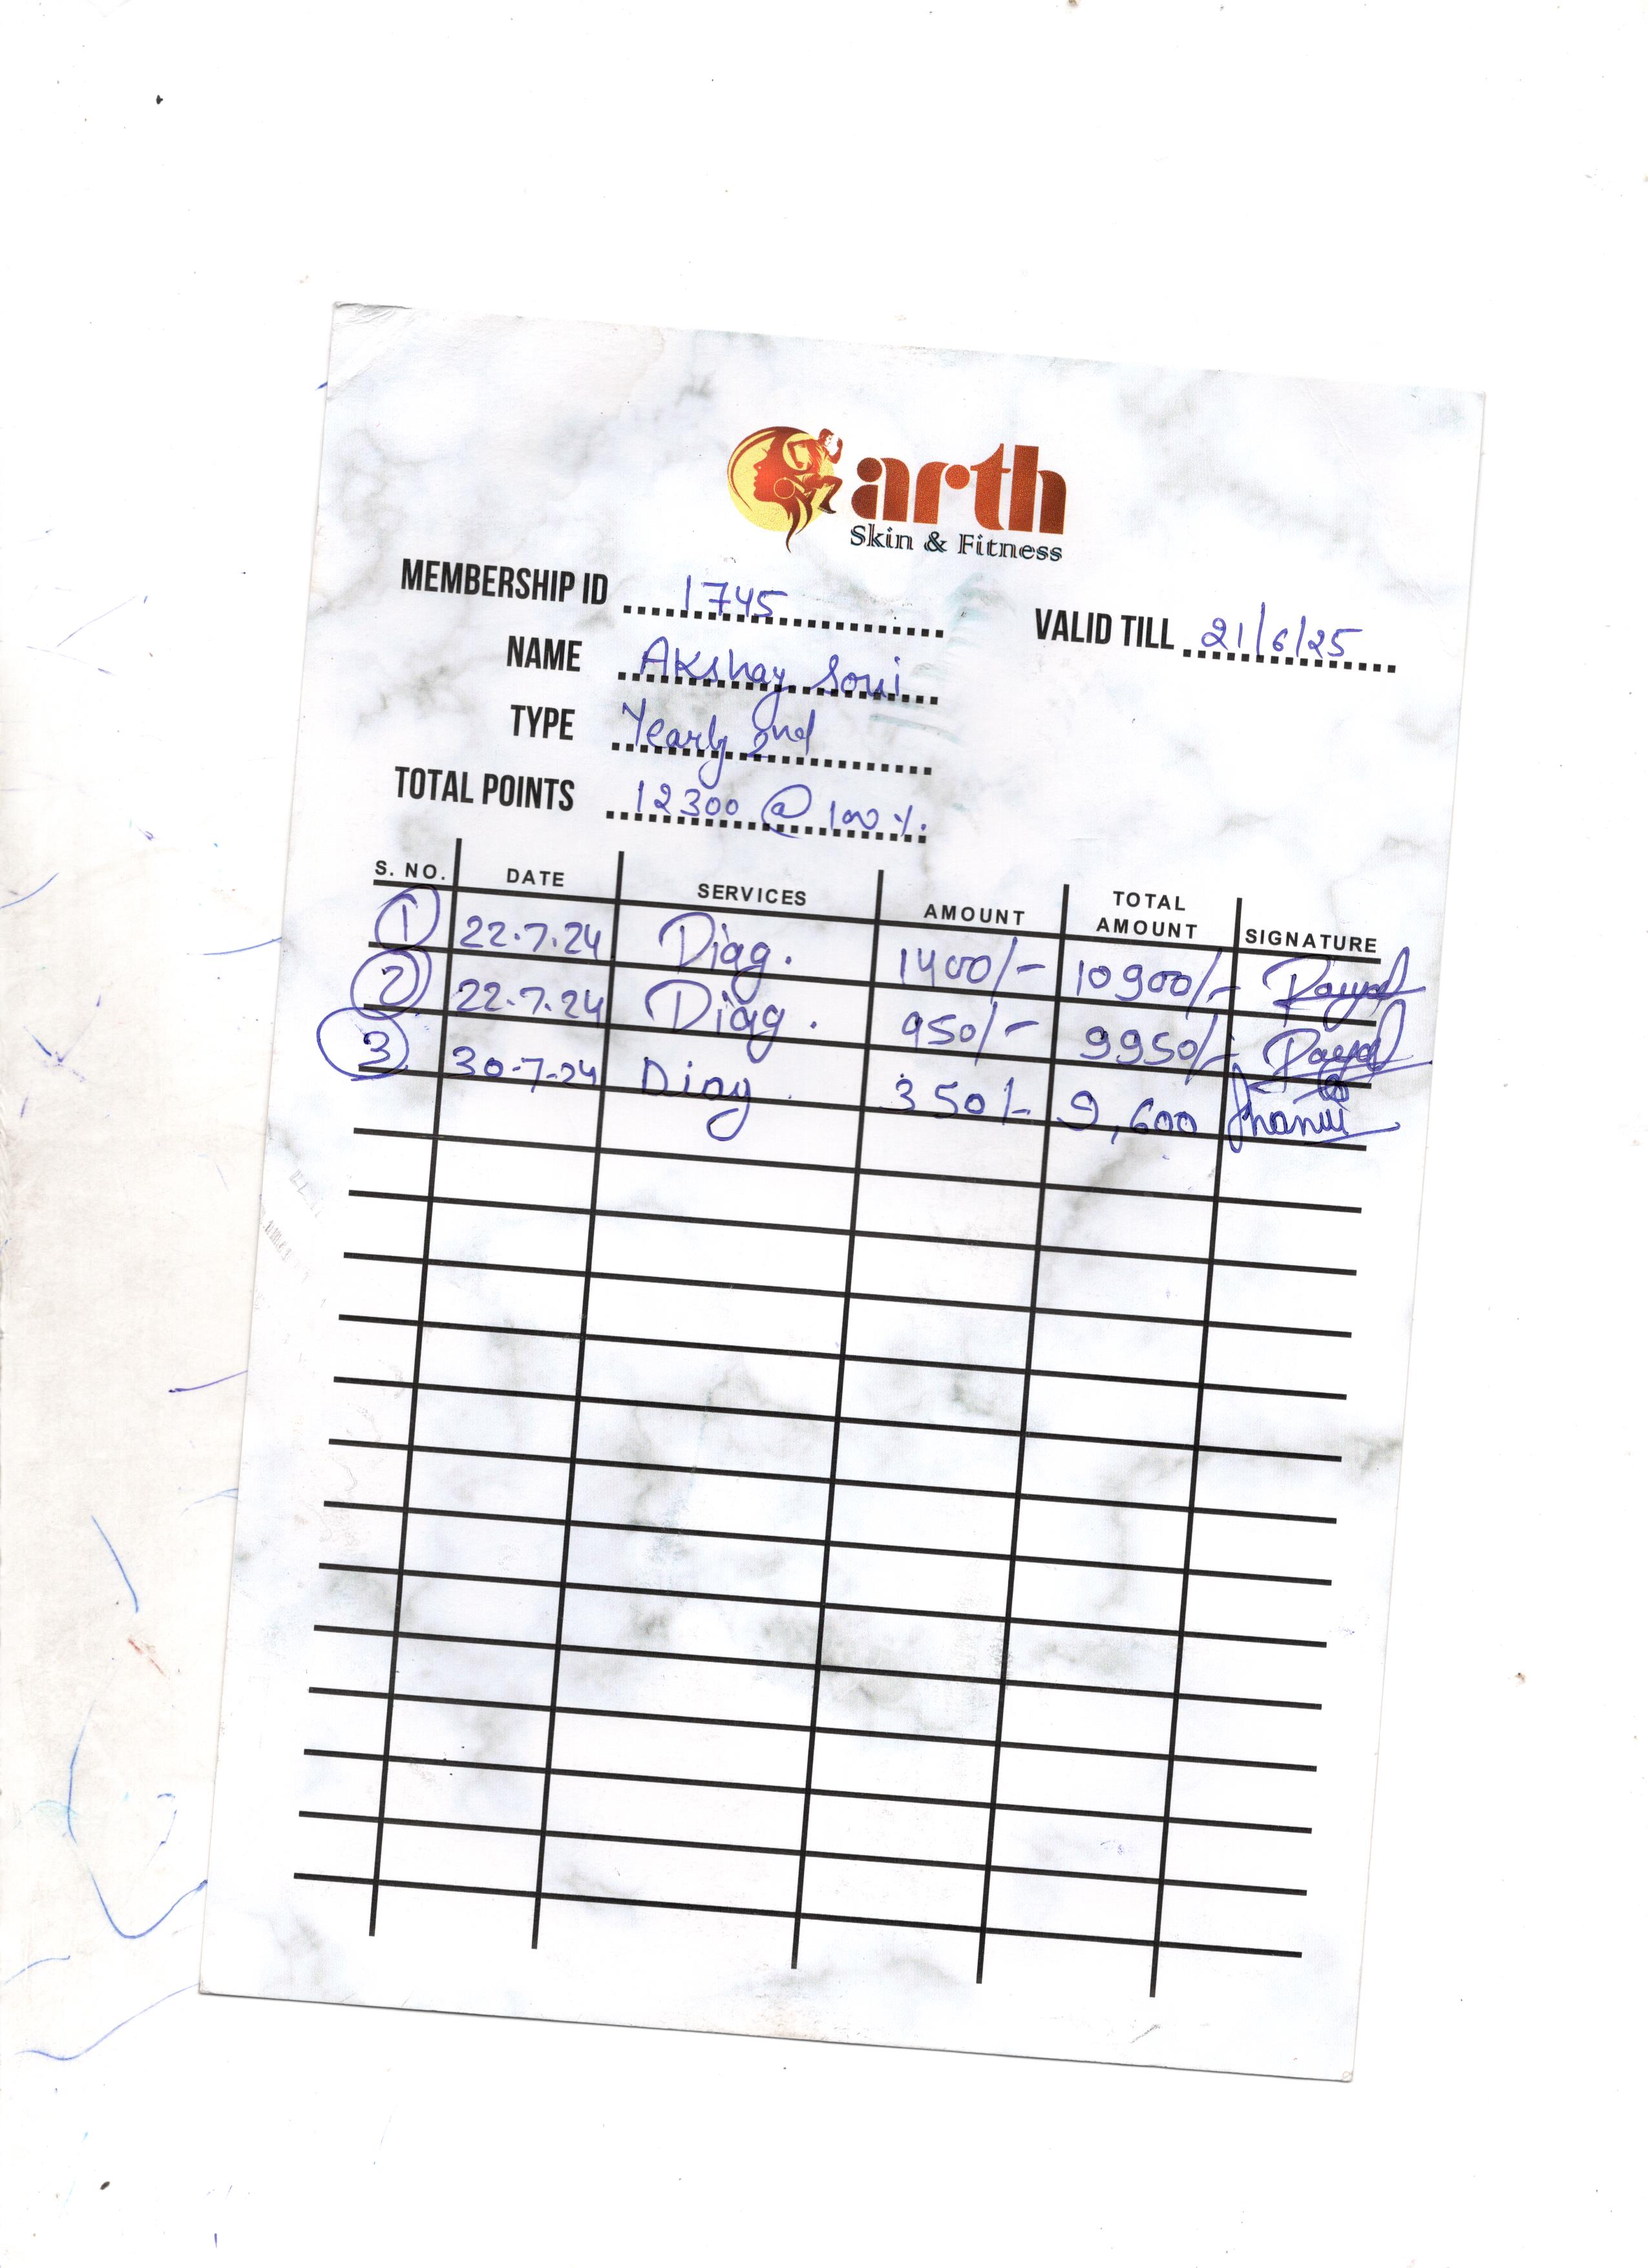 arth
Skin & Fitness
MEMBERSHIP ID 1745
VALID TILL 21/6/25
NAME Akshay Soni
TYPE Yearly 2nd
TOTAL POINTS 12300 @ 100 %.
S. NO. DATE SERVICES AMOUNT TOTAL AMOUNT SIGNATURE
1 22.7.24 Diag. 1400/- 10900/- Payal
2 22.7.24 Diag. 950/- 9950/- Payal
3 30-7-24 Diag. 350/- 9,600 Jhanvi